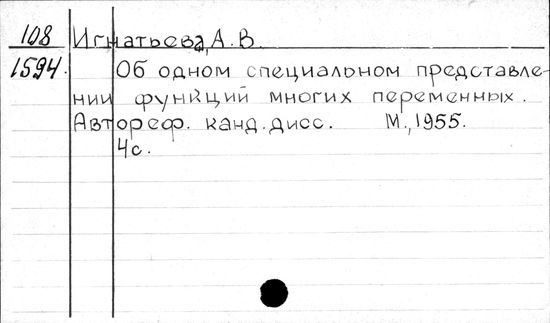 108 Игнатьева, А. В.
1594. Об одном специальном представле-
нии функций многих переменных.
Автореф. канд. дисс. М., 1955.
4с.